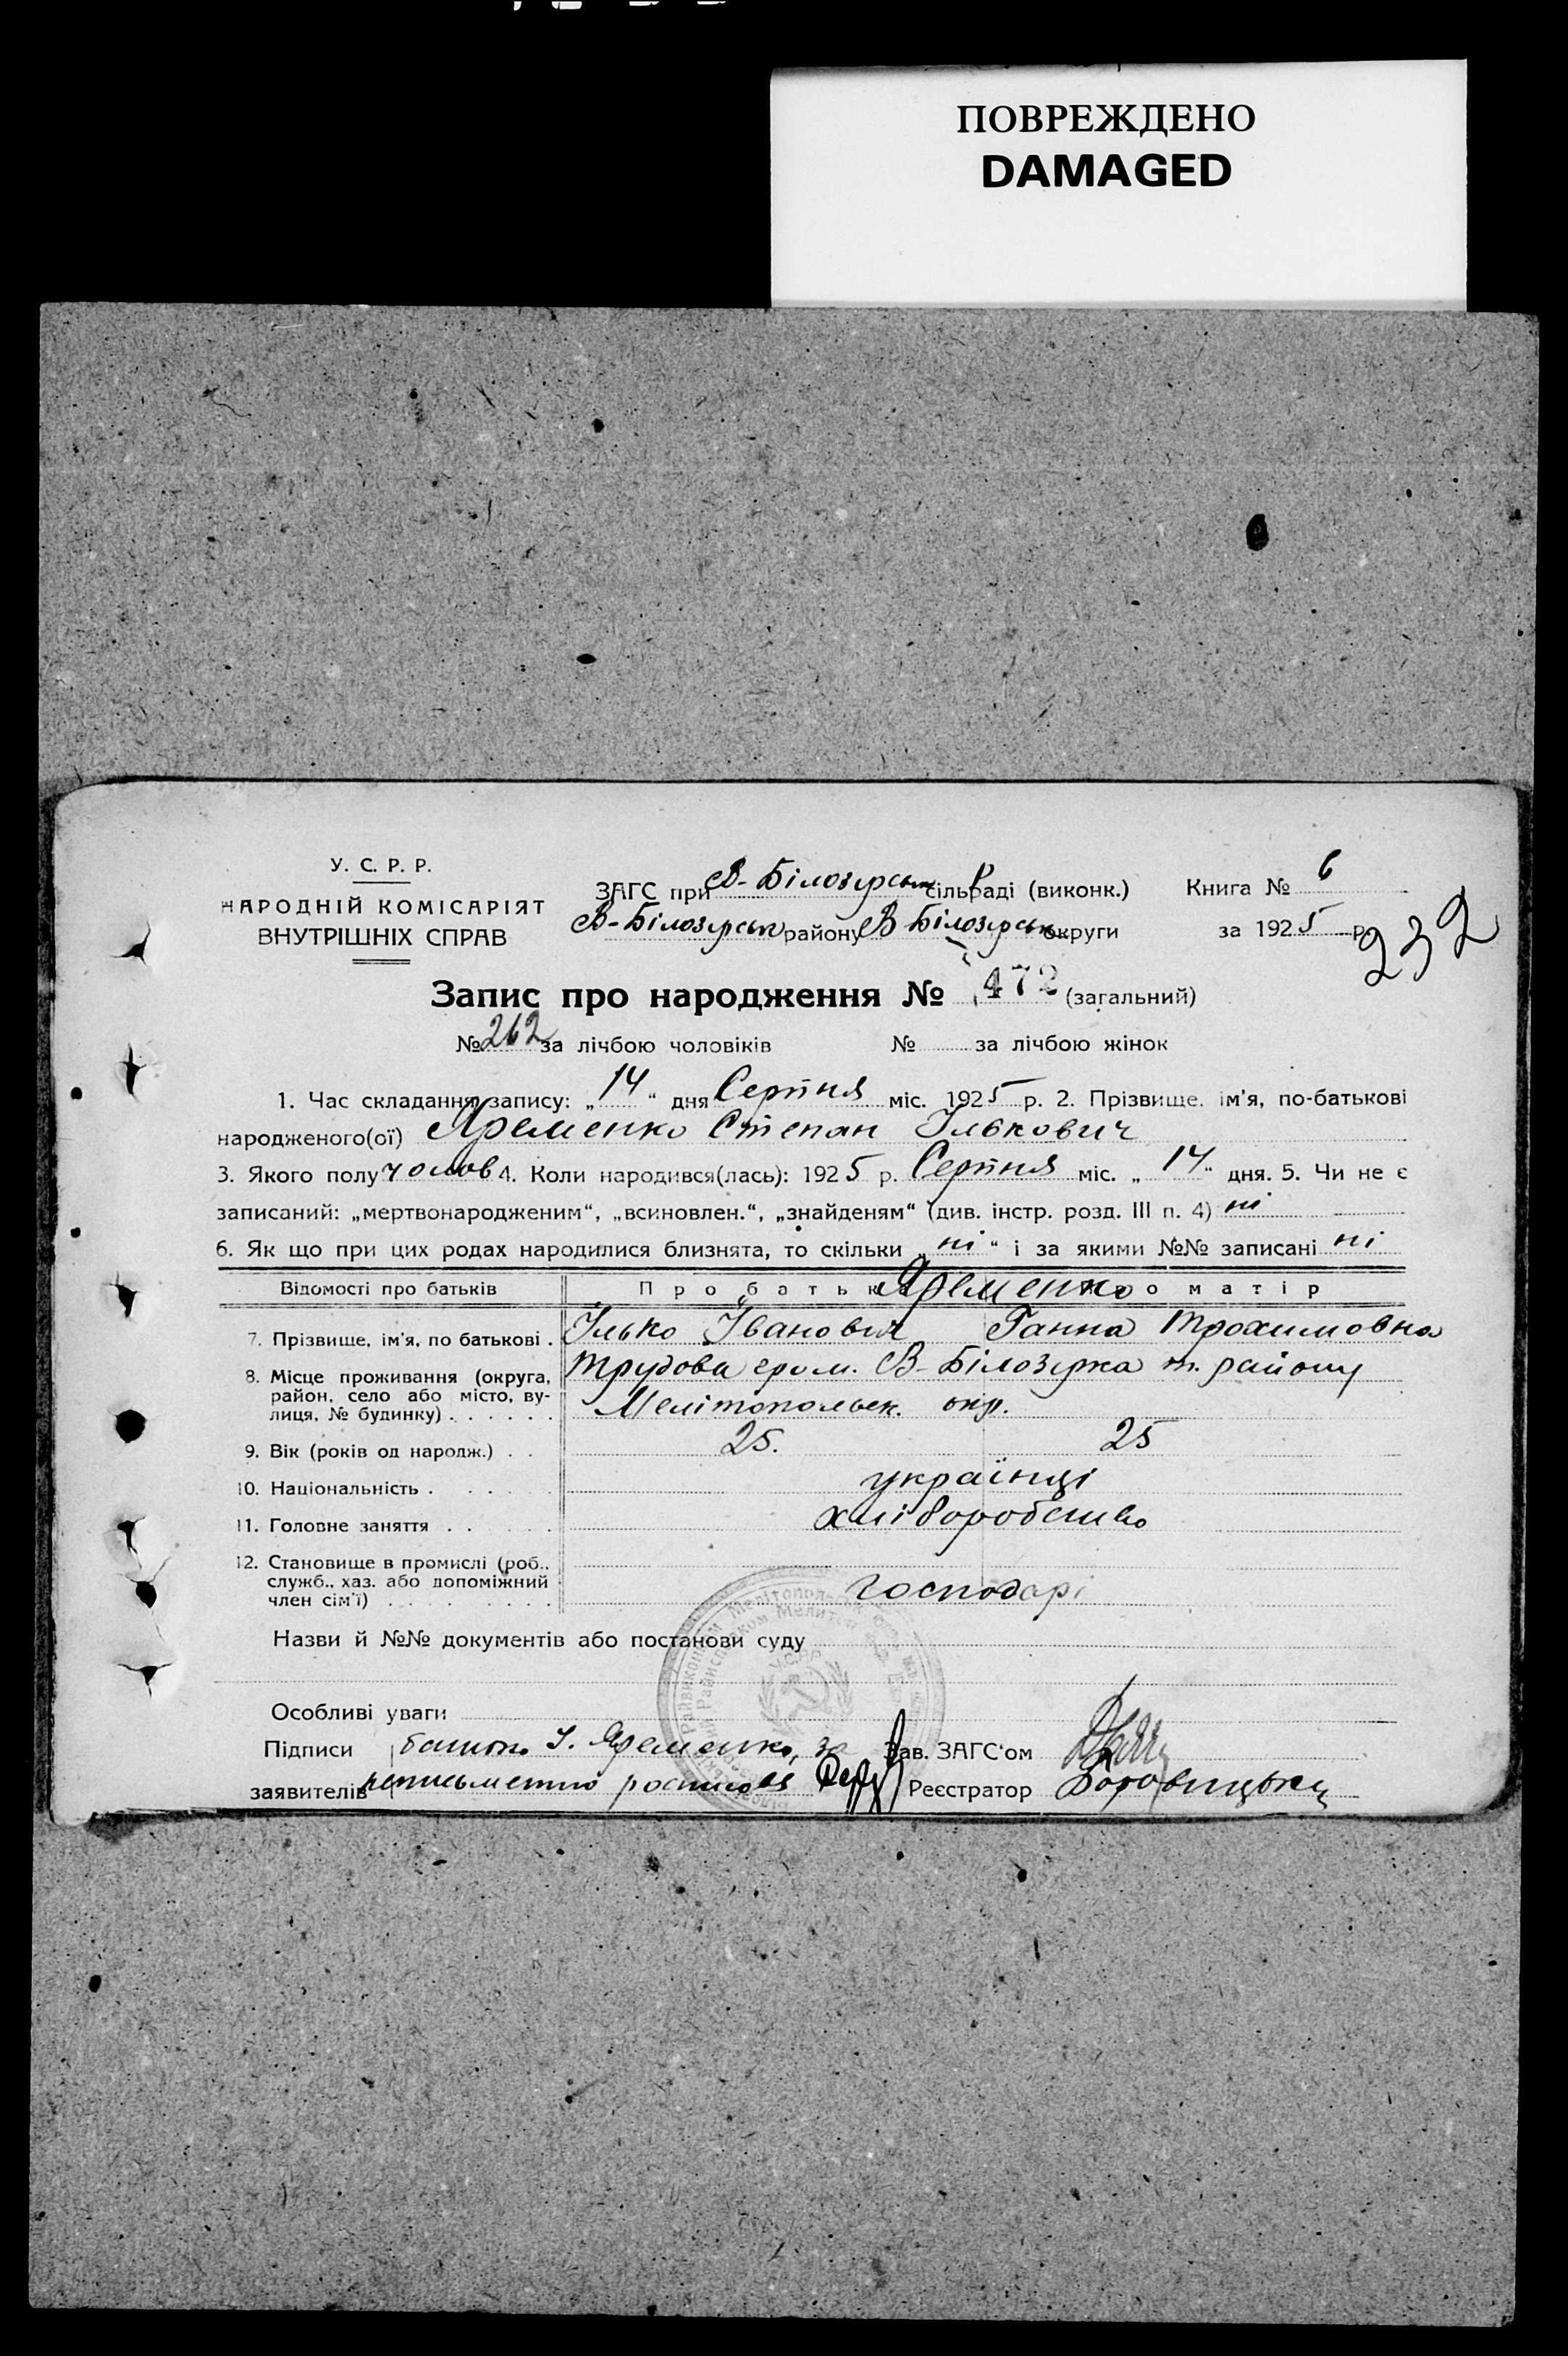 ПОВРЕЖДЕНО
DAMAGED
У. С. Р. Р.
НАРОДНІЙ КОМІСАРІЯТ
ВНУТРІШНІХ СПРАВ
ЗАГС при В-Білозерськ сільраді (виконк.)
В-Білозерськ району В Білозерськ округи
Книга № 6
за 1925 р.
232
Запис про народження № 472 (загальний)
№ 262 за лічбою чоловіків № за лічбою жінок
1. Час складання запису: „14“ дня Серпня міс. 1925 р. 2. Прізвище, ім'я, по-батькові
народженого(ої) Яременко Степан Ількович
3. Якого полу чолов 4. Коли народився(лась): 1925 р. Серпня міс. „14“ дня. 5. Чи не є
записаний: „мертвонародженим“, „всиновлен.“, „знайденям“ (див. інстр. розд. III п. 4) ні
6. Як що при цих родах народилися близнята, то скільки „ні“ і за якими №№ записані ні
Відомості про батьків Про батька Яременко Про матір
7. Прізвище, ім'я, по батькові . Ілько Іванович Ганна Трохимовна
8. Місце проживання (округа, Трудова гром. В-Білозерка т. району
район, село або місто, ву-
лиця, № будинку) . . . . . . Мелітопольск. окр.
9. Вік (років од народж.) . . 25. 25
10. Національність . . . . . . українці
11. Головне заняття . . . . . . хліборобство
12. Становище в промислі (роб..
служб., хаз. або допоміжний
член сім'ї) . . . . . . . . . господарі
Назви й №№ документів або постанови суду
Особливі уваги
Підписи батько І. Яременко, за Зав. ЗАГС'ом
заявителів неписьменно росписався Реєстратор Боровицький